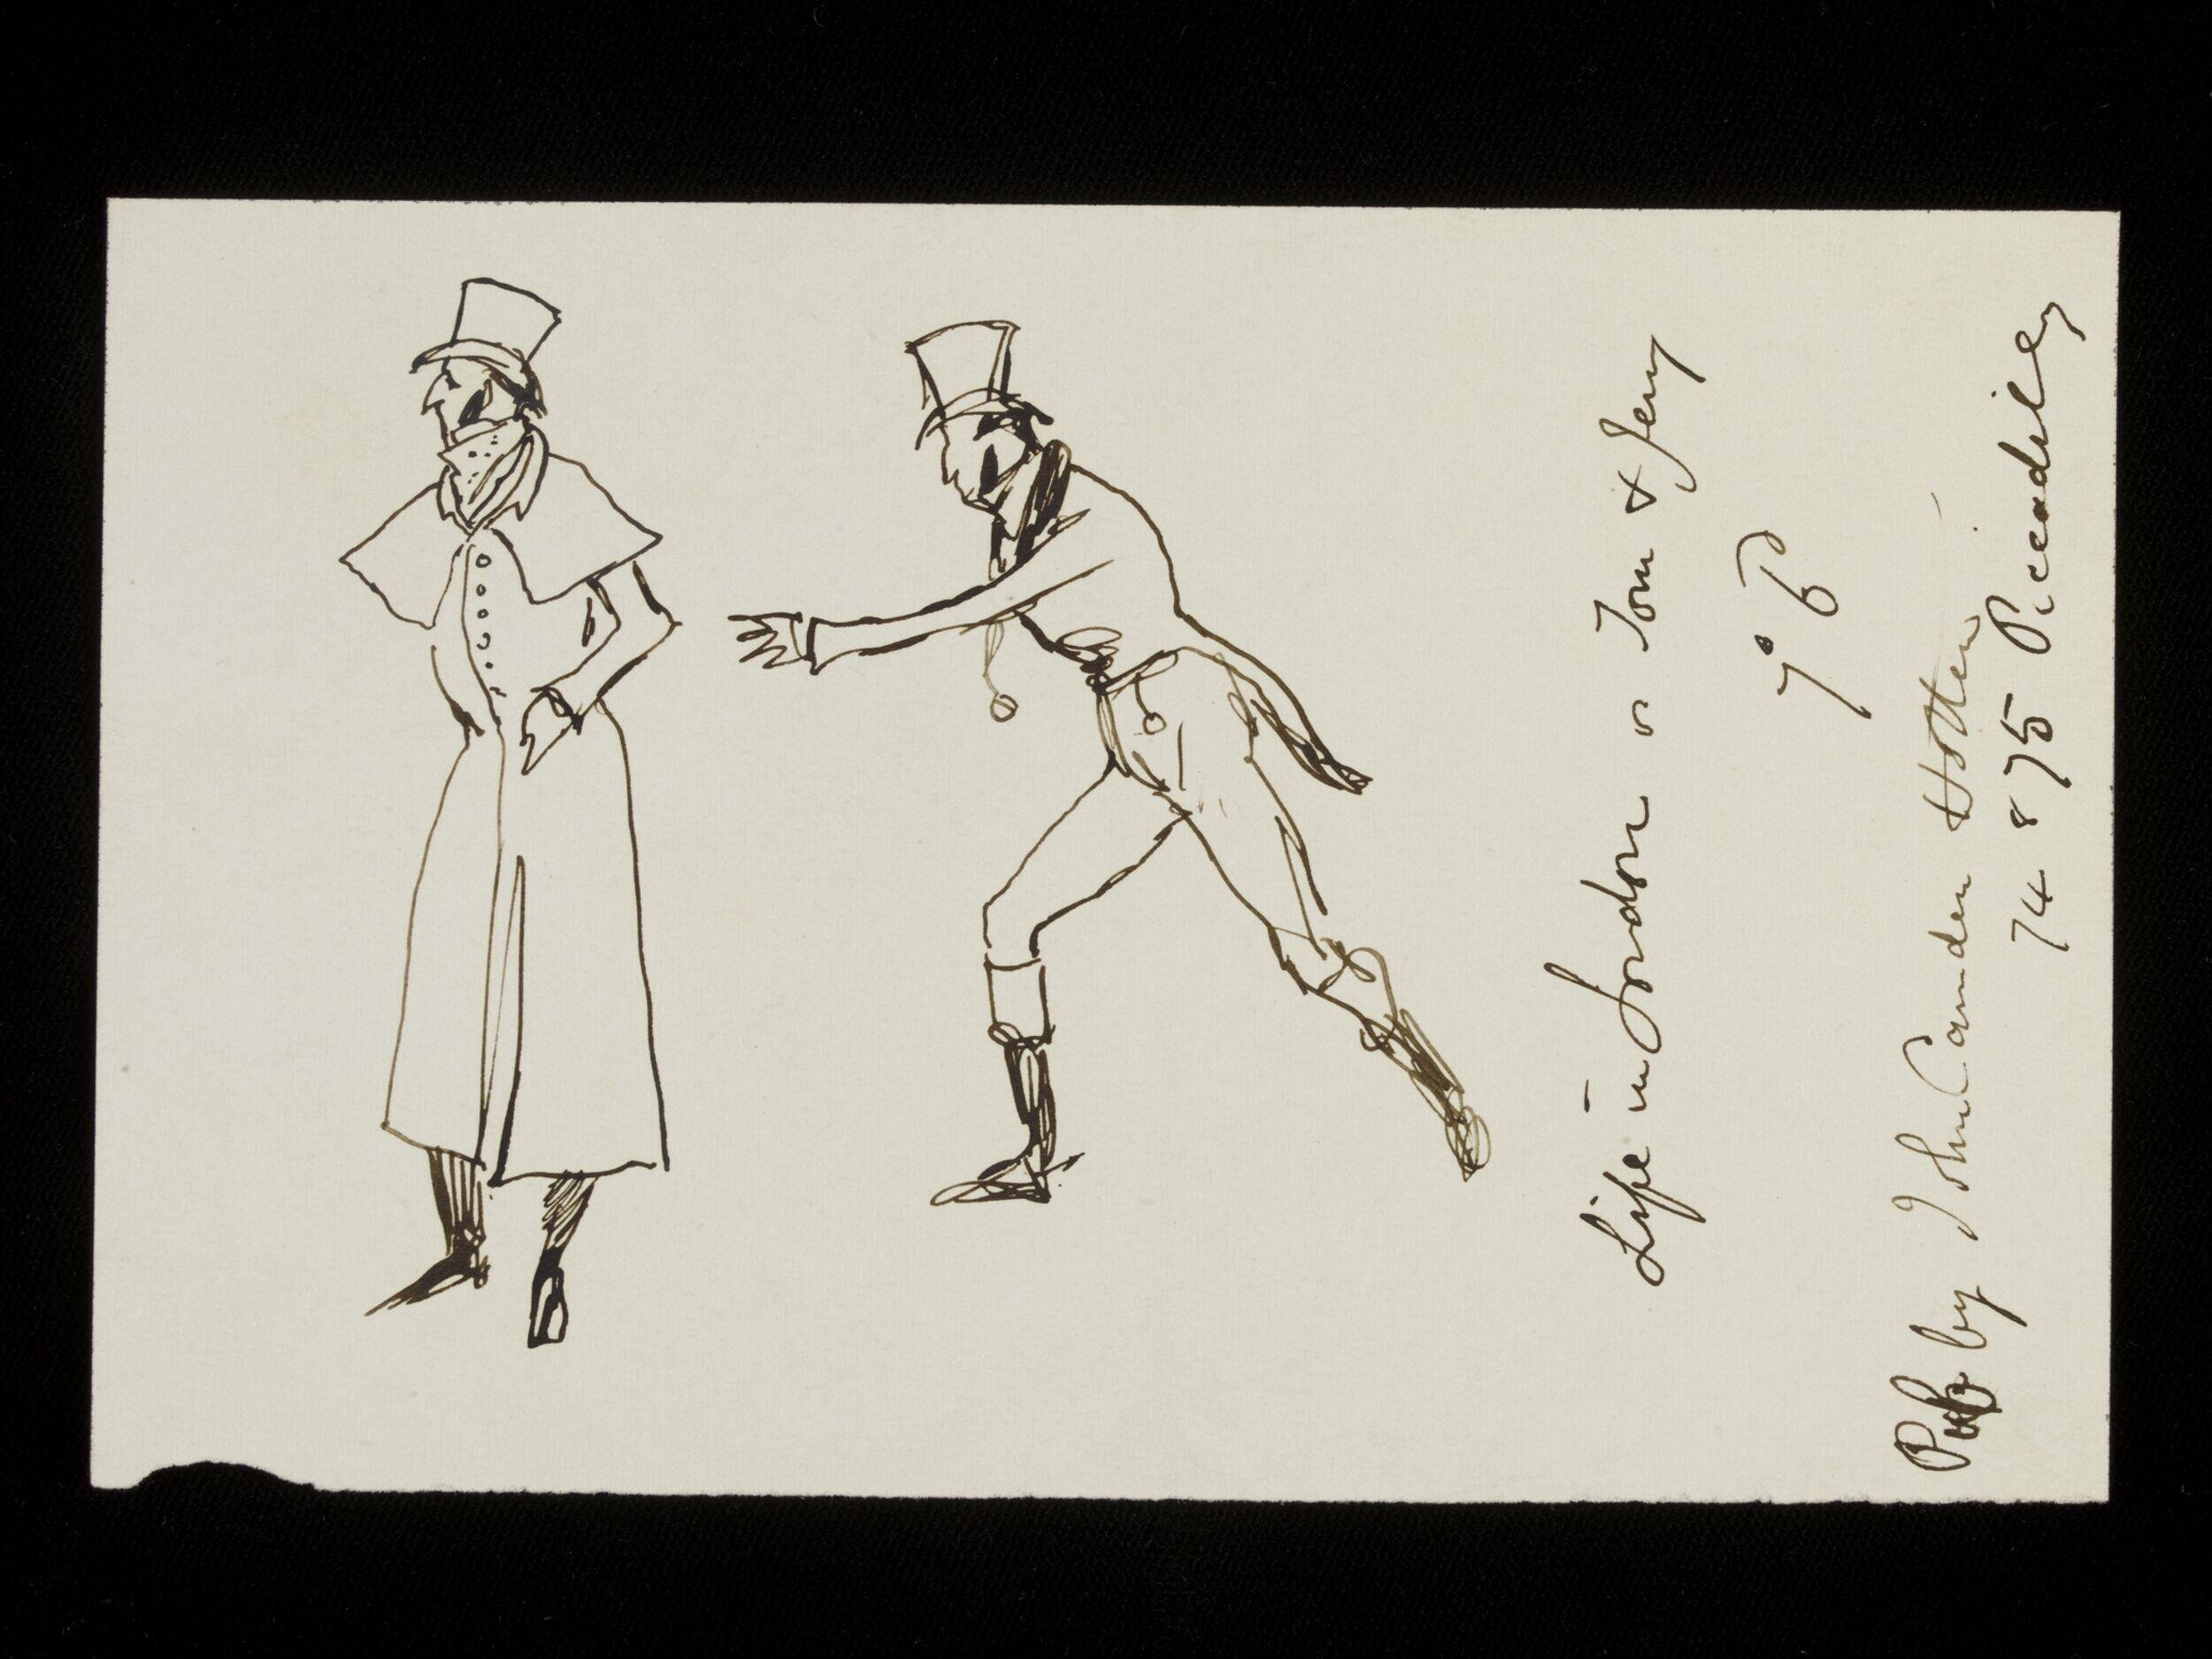 Life in London or Tom & Jerry
7·6
Pub by John Camden Hotten
74 & 75 Piccadilly